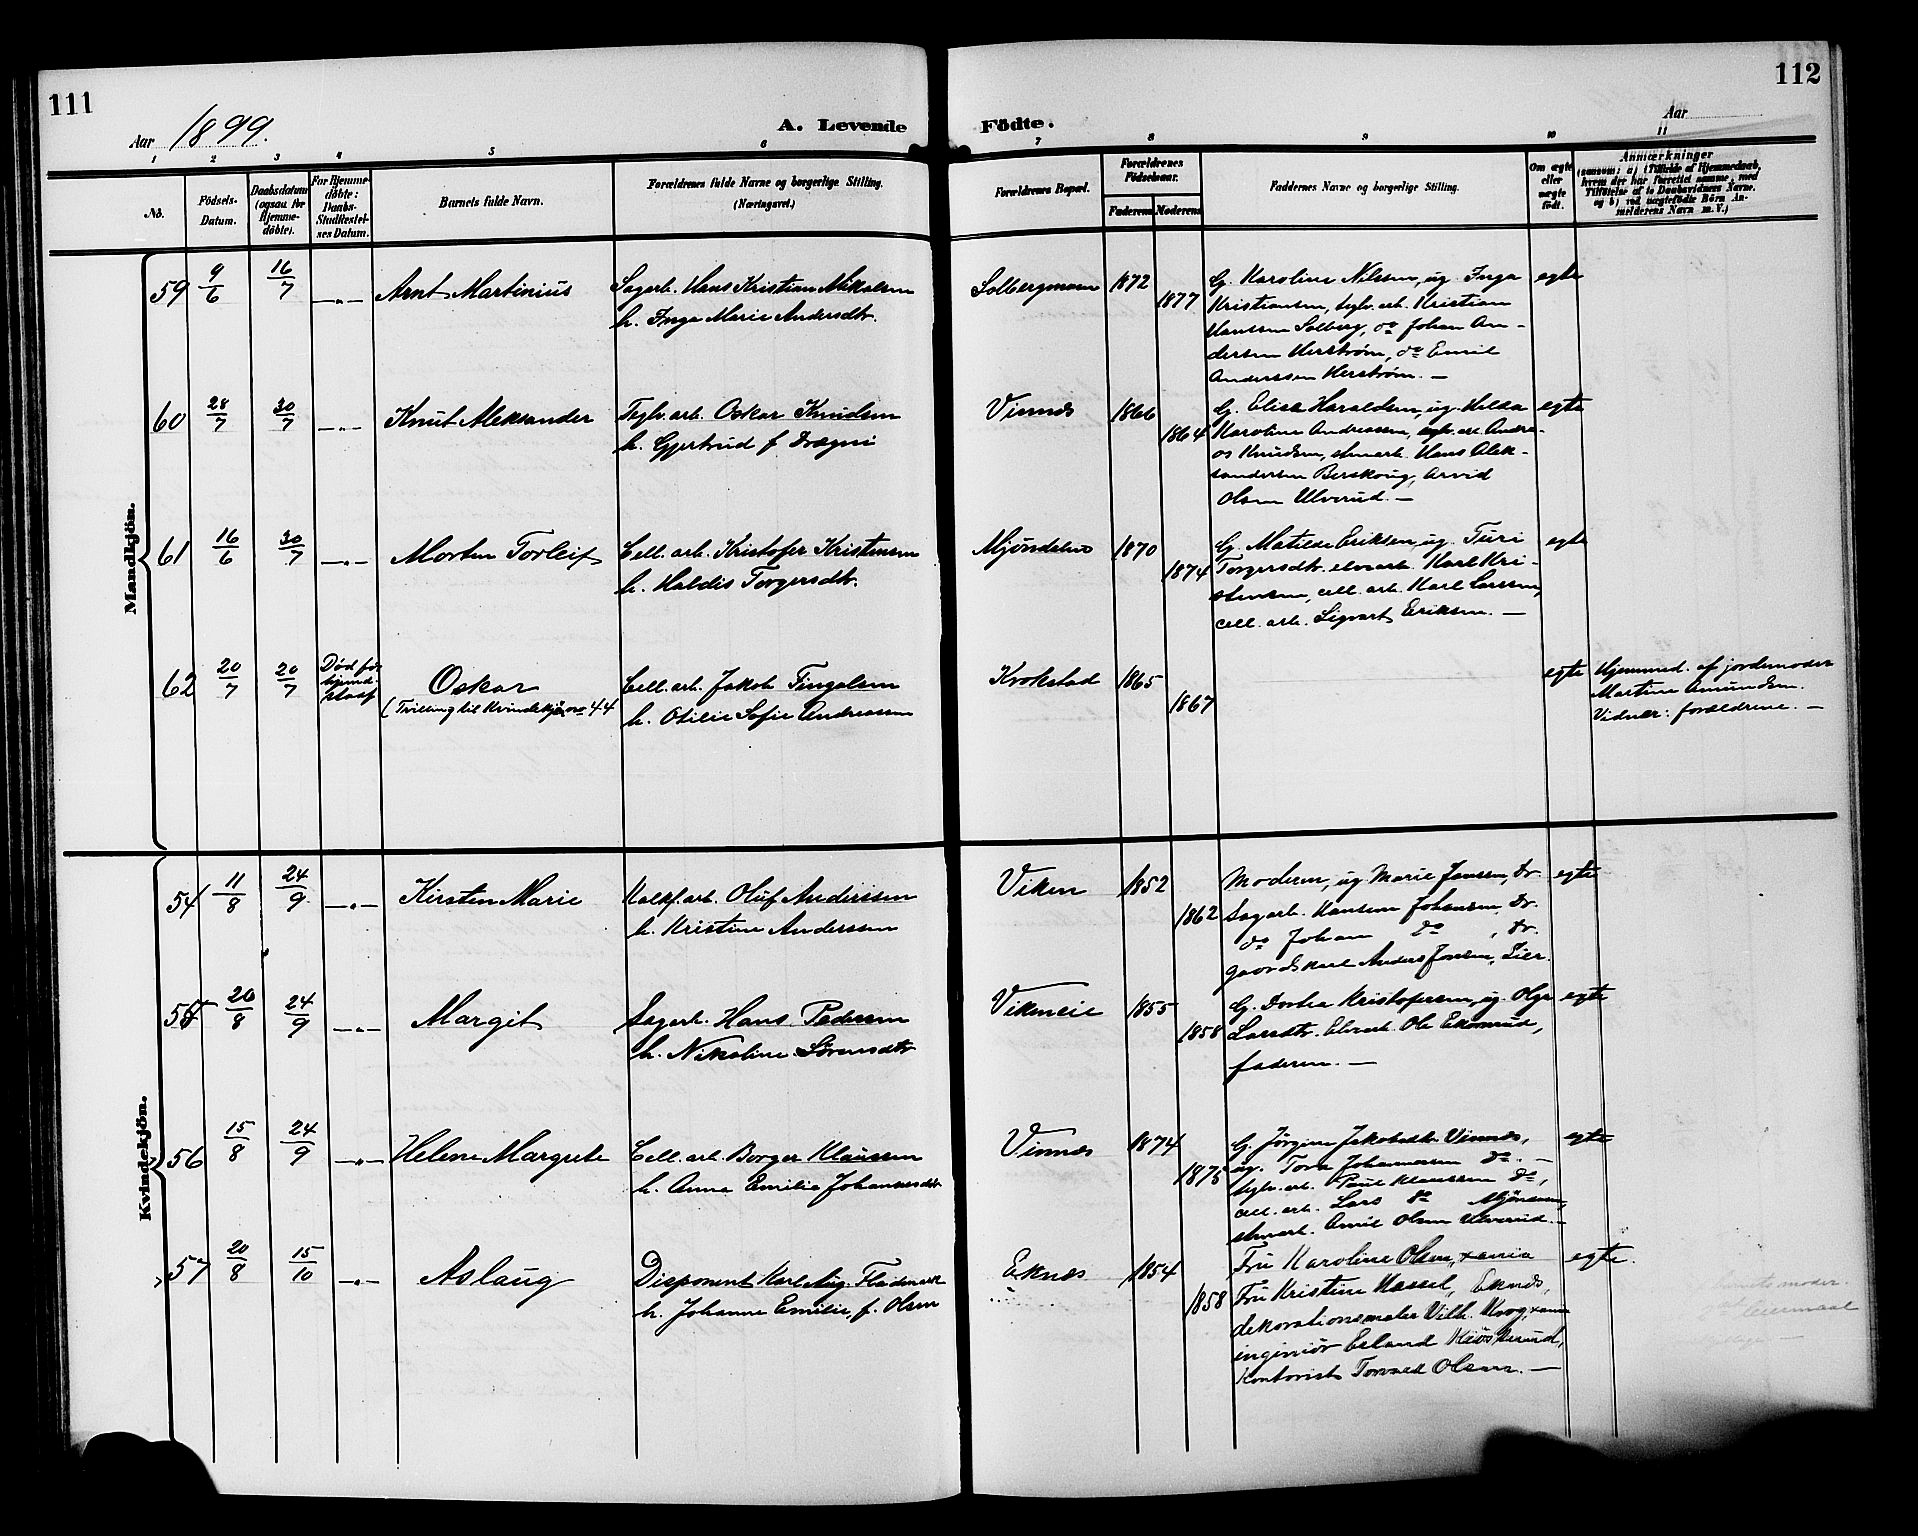 111
112
Aar 1899.
A. Levende
Födte.
Aar
1 2 3 4 5 6 7 8 9 10 11
No.
Födsels-
Datum.
Daabsdatum
(ogsaa for
Hjemme-
döbte).
For Hjemme-
döbte:
Daabs-
Stadfæstel-
ses Datum.
Barnets fulde Navn.
Forældrenes fulde Navne og borgerlige Stilling.
(Næringsvei.)
Forældrenes Bopæl.
Forældrenes
Födselsaar.
Faderens Moderens
Faddernes Navne og borgerlige Stilling.
Om ægte
eller
uægte
född.
Anmærkninger
(saasom: a) i Tilfælde af Hjemmedaab,
hvem der har forrettet samme, med
Tilföielse af to Daabsvidners Navne,
og b) ved uægtefödte Börn An-
melderens Navn m. V.)
Mandkjön.
59 9/6 16/7 —"— Arnt Martinius
Sagarb. Hans Kristian Mikalsen
h. Inga Marie Andersdtr.
Solbergmoen 1872 1877
G. Karoline Nilssen, ug. Inga
Kristiansen, teglv.arb. Kristian
Hanssen Solberg, do Johan An-
dersen Herstrøm, do Emil
Anderssen Herstrøm. —
egte
60 28/7 30/7 —"— Knut Aleksander
Teglv.arb. Oskar Knudsen
h. Gjertrud f. Drægni
Vinnæs 1866 1864
G. Elise Haraldsen, ug. Hilda
Karoline Andreassen, teglv.arb. Andre-
as Knudsen, stenarb. Hans Alek-
sandersen Berskoug, Arvid
Olsen Ulverud. —
egte
61 16/6 30/7 —"— Morten Torleif
Cell. arb. Kristofer Kristensen
h. Haldis Torgersdtr.
Mjøndalen 1870 1874
G. Matilde Eriksen, ug. Turi
Torgersdtr. elvearb. Karl Kri-
stensen, cell. arb. Karl Larssen,
cell. arb. Sigvart Eriksen. —
egte
62 20/7 20/7 Død før
stadf
Oskar
(Tvilling til Kvindekjøn no 44
Cell. arb. Jakob Tingelsen
h. Otilie Sofie Andreassen
Krokstad 1865 1867
egte
Hjemmed. af jordemoder
Martine Amundsen.
Vidner: forældrene. —
Kvindekjön.
54 11/8 24/9 —"— Kirsten Marie
Kalkf.arb. Oluf Anderssen
h. Kristine Anderssen
Viken 1852 1862
Moderen, ug Marie Jansen, Dr.
Sagarb. Hansen Johansen, Dr.
do Johan do , Dr.
gaardskarl Anders Jonsen, Lier.
egte
55 20/8 24/9 —"— Margit
Sagarb. Hans Pedersen
h. Nikoline Sørensdtr
Vikeneie 1855 1858
G. Dortea Kristofersen, ug. Olga
Larsdtr. Elvearb. Ole Ekornrud,
faderen. —
egte
56 15/8 24/9 —"— Helene Margrete
Cell. arb. Borger Klaussen
h. Anna Emilie Johannesdtr
Vinnæs 1874 1875
G. Jørgine Jakobsdtr. Vinnæs,
ug. Tora Johannessen do. —
teglv. arb. Paul Klaussen do,
cell. arb. Lars do
stenarb. Emil Olsen Ulverud. —
egte
57 20/8 15/10 —"— Aslaug
Disponent Karl Aug. Flademark
h. Johanne Emilie, f. Olsen
Eknæs 1854 1858
Fru Karoline Olsen, xania
Fru Kristine Hassel, Eknæs,
dekorationsmaler Vilh. Krog, xania
ingeniør Erland Kiøsterud,
Kontorist Torvald Olsen. —
egte.